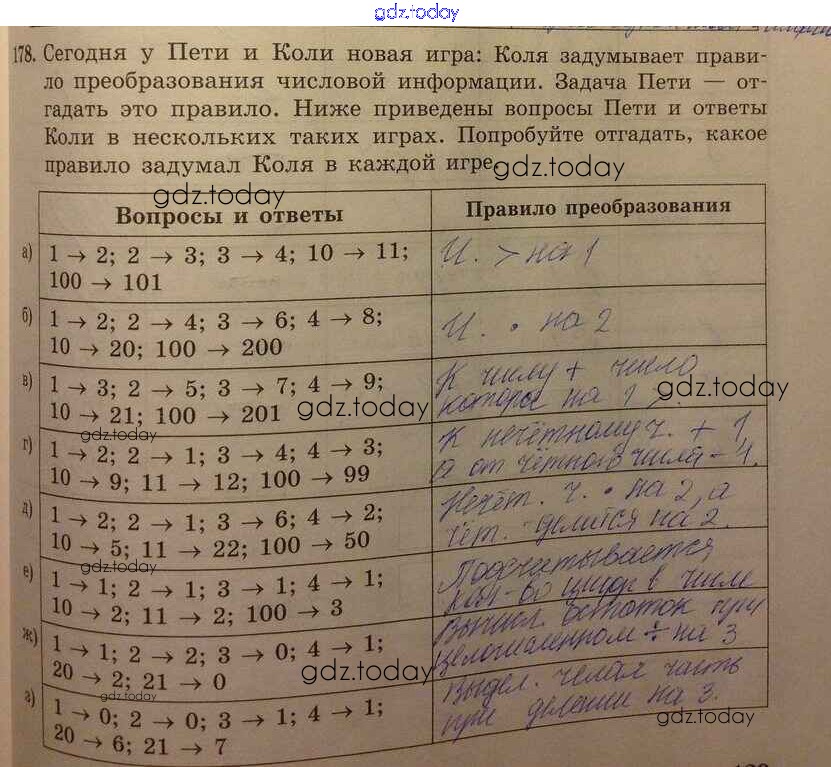 gdz.today
178. Сегодня у Пети и Коли новая игра: Коля задумывает прави-
ло преобразования числовой информации. Задача Пети — от-
гадать это правило. Ниже приведены вопросы Пети и ответы
Коли в нескольких таких играх. Попробуйте отгадать, какое
правило задумал Коля в каждой игре.
gdz.today
gdz.today
Вопросы и ответы
Правило преобразования
а) 1 → 2; 2 → 3; 3 → 4; 10 → 11;
100 → 101
И. > на 1
б) 1 → 2; 2 → 4; 3 → 6; 4 → 8;
10 → 20; 100 → 200
И. • на 2
в) 1 → 3; 2 → 5; 3 → 7; 4 → 9;
10 → 21; 100 → 201
К числу + число
на 1 >.
gdz.today
gdz.today
gdz.today
г) 1 → 2; 2 → 1; 3 → 4; 4 → 3;
10 → 9; 11 → 12; 100 → 99
К нечётному ч. + 1,
а от чётного числа - 1.
д) 1 → 2; 2 → 1; 3 → 6; 4 → 2;
10 → 5; 11 → 22; 100 → 50
Нечёт. ч. • на 2, а
чёт. делится на 2.
gdz.today
е) 1 → 1; 2 → 1; 3 → 1; 4 → 1;
10 → 2; 11 → 2; 100 → 3
Подсчитывается
кол-во цифр в числе
ж) 1 → 1; 2 → 2; 3 → 0; 4 → 1;
20 → 2; 21 → 0
Вычисл. остаток при
целочисленном ÷ на 3
gdz.today
gdz.today
з) 1 → 0; 2 → 0; 3 → 1; 4 → 1;
20 → 6; 21 → 7
Выдел. целая часть
при делении на 3.
gdz.today